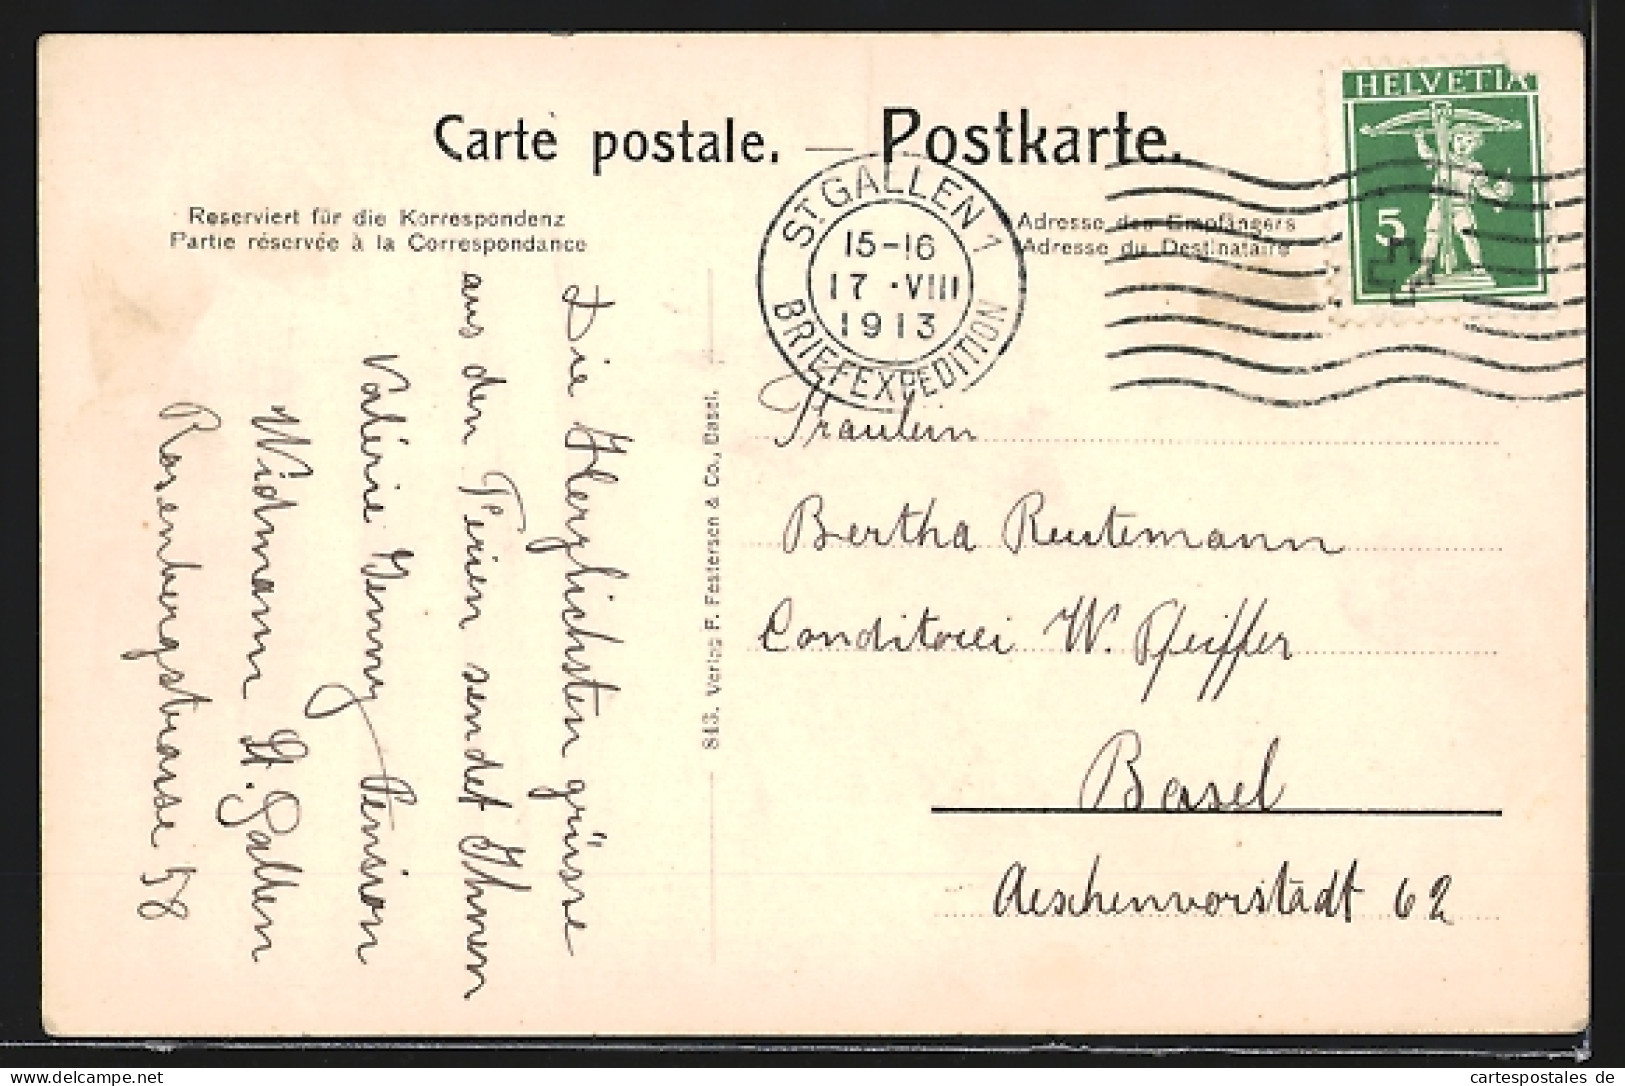 Carte postale. — Postkarte.
Reserviert für die Korrespondenz
Partie réservée à la Correspondance
Adresse des Empfängers
Adresse du Destinataire
HELVETIA
5
ST. GALLEN 1
15-16
17.VIII
1913
BRIEFEXPEDITION
Die Herzlichsten grüsse
aus den Ferien sendet Ihnen
Valérie Jenny Pension
Widmann St. Gallen
Rosenbergstrasse 58
843. Verlag F. Festersen & Co., Basel.
Fräulein
Bertha Reutemann
Conditorei W. Pfeiffer
Basel
Aeschenvorstadt 62
www.delcampe.net
cartespostales de